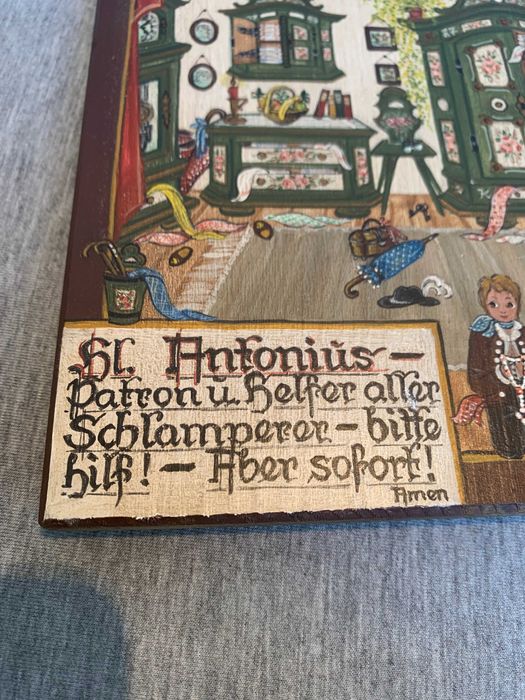 Hl. Antonius –
Patron u. Helfer aller
Schlamperer – bitte
hilf! – Aber sofort!
Amen